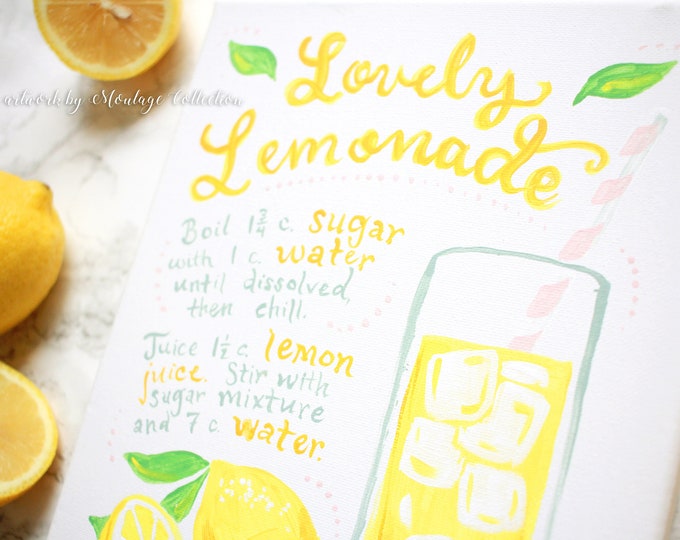 artwork by Moulage Collection
Lovely
Lemonade
Boil 1 3/4 c. sugar
with 1 c. water
until dissolved,
then chill.
Juice 1 1/2 c. lemon
juice. Stir with
sugar mixture
and 7 c. water.